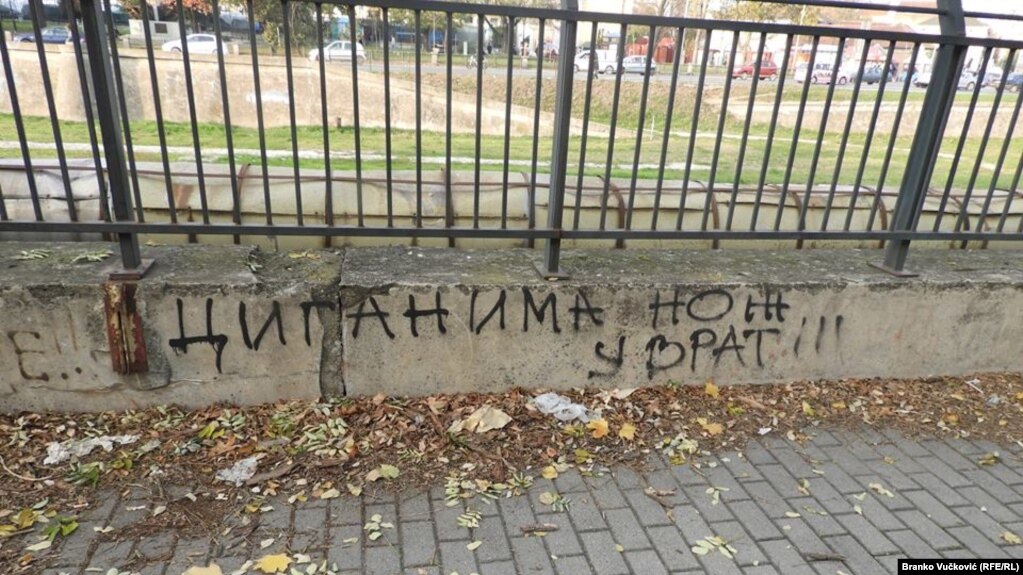 Е!!
ЦИГАНИМА НОЖ
У ВРАТ!!!
Branko Vučković (RFE/RL)